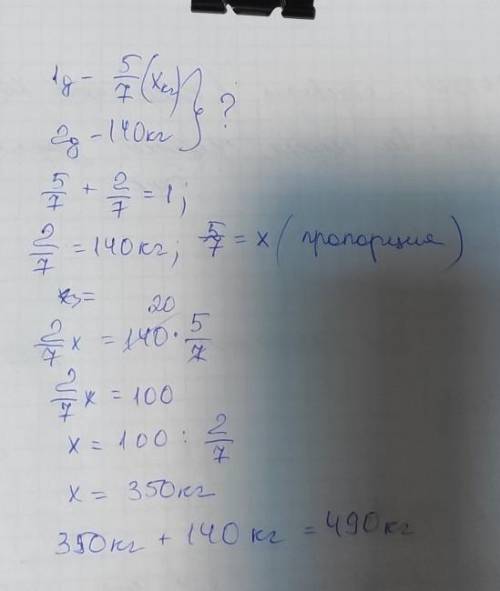 1д - 5/7 (x кг) } ?
2д - 140 кг
5/7 + 2/7 = 1;
2/7 = 140 кг; 5/7 = x (пропорция)
20
2/7 x = 140 · 5/7
2/7 x = 100
x = 100 : 2/7
x = 350 кг
350 кг + 140 кг = 490 кг